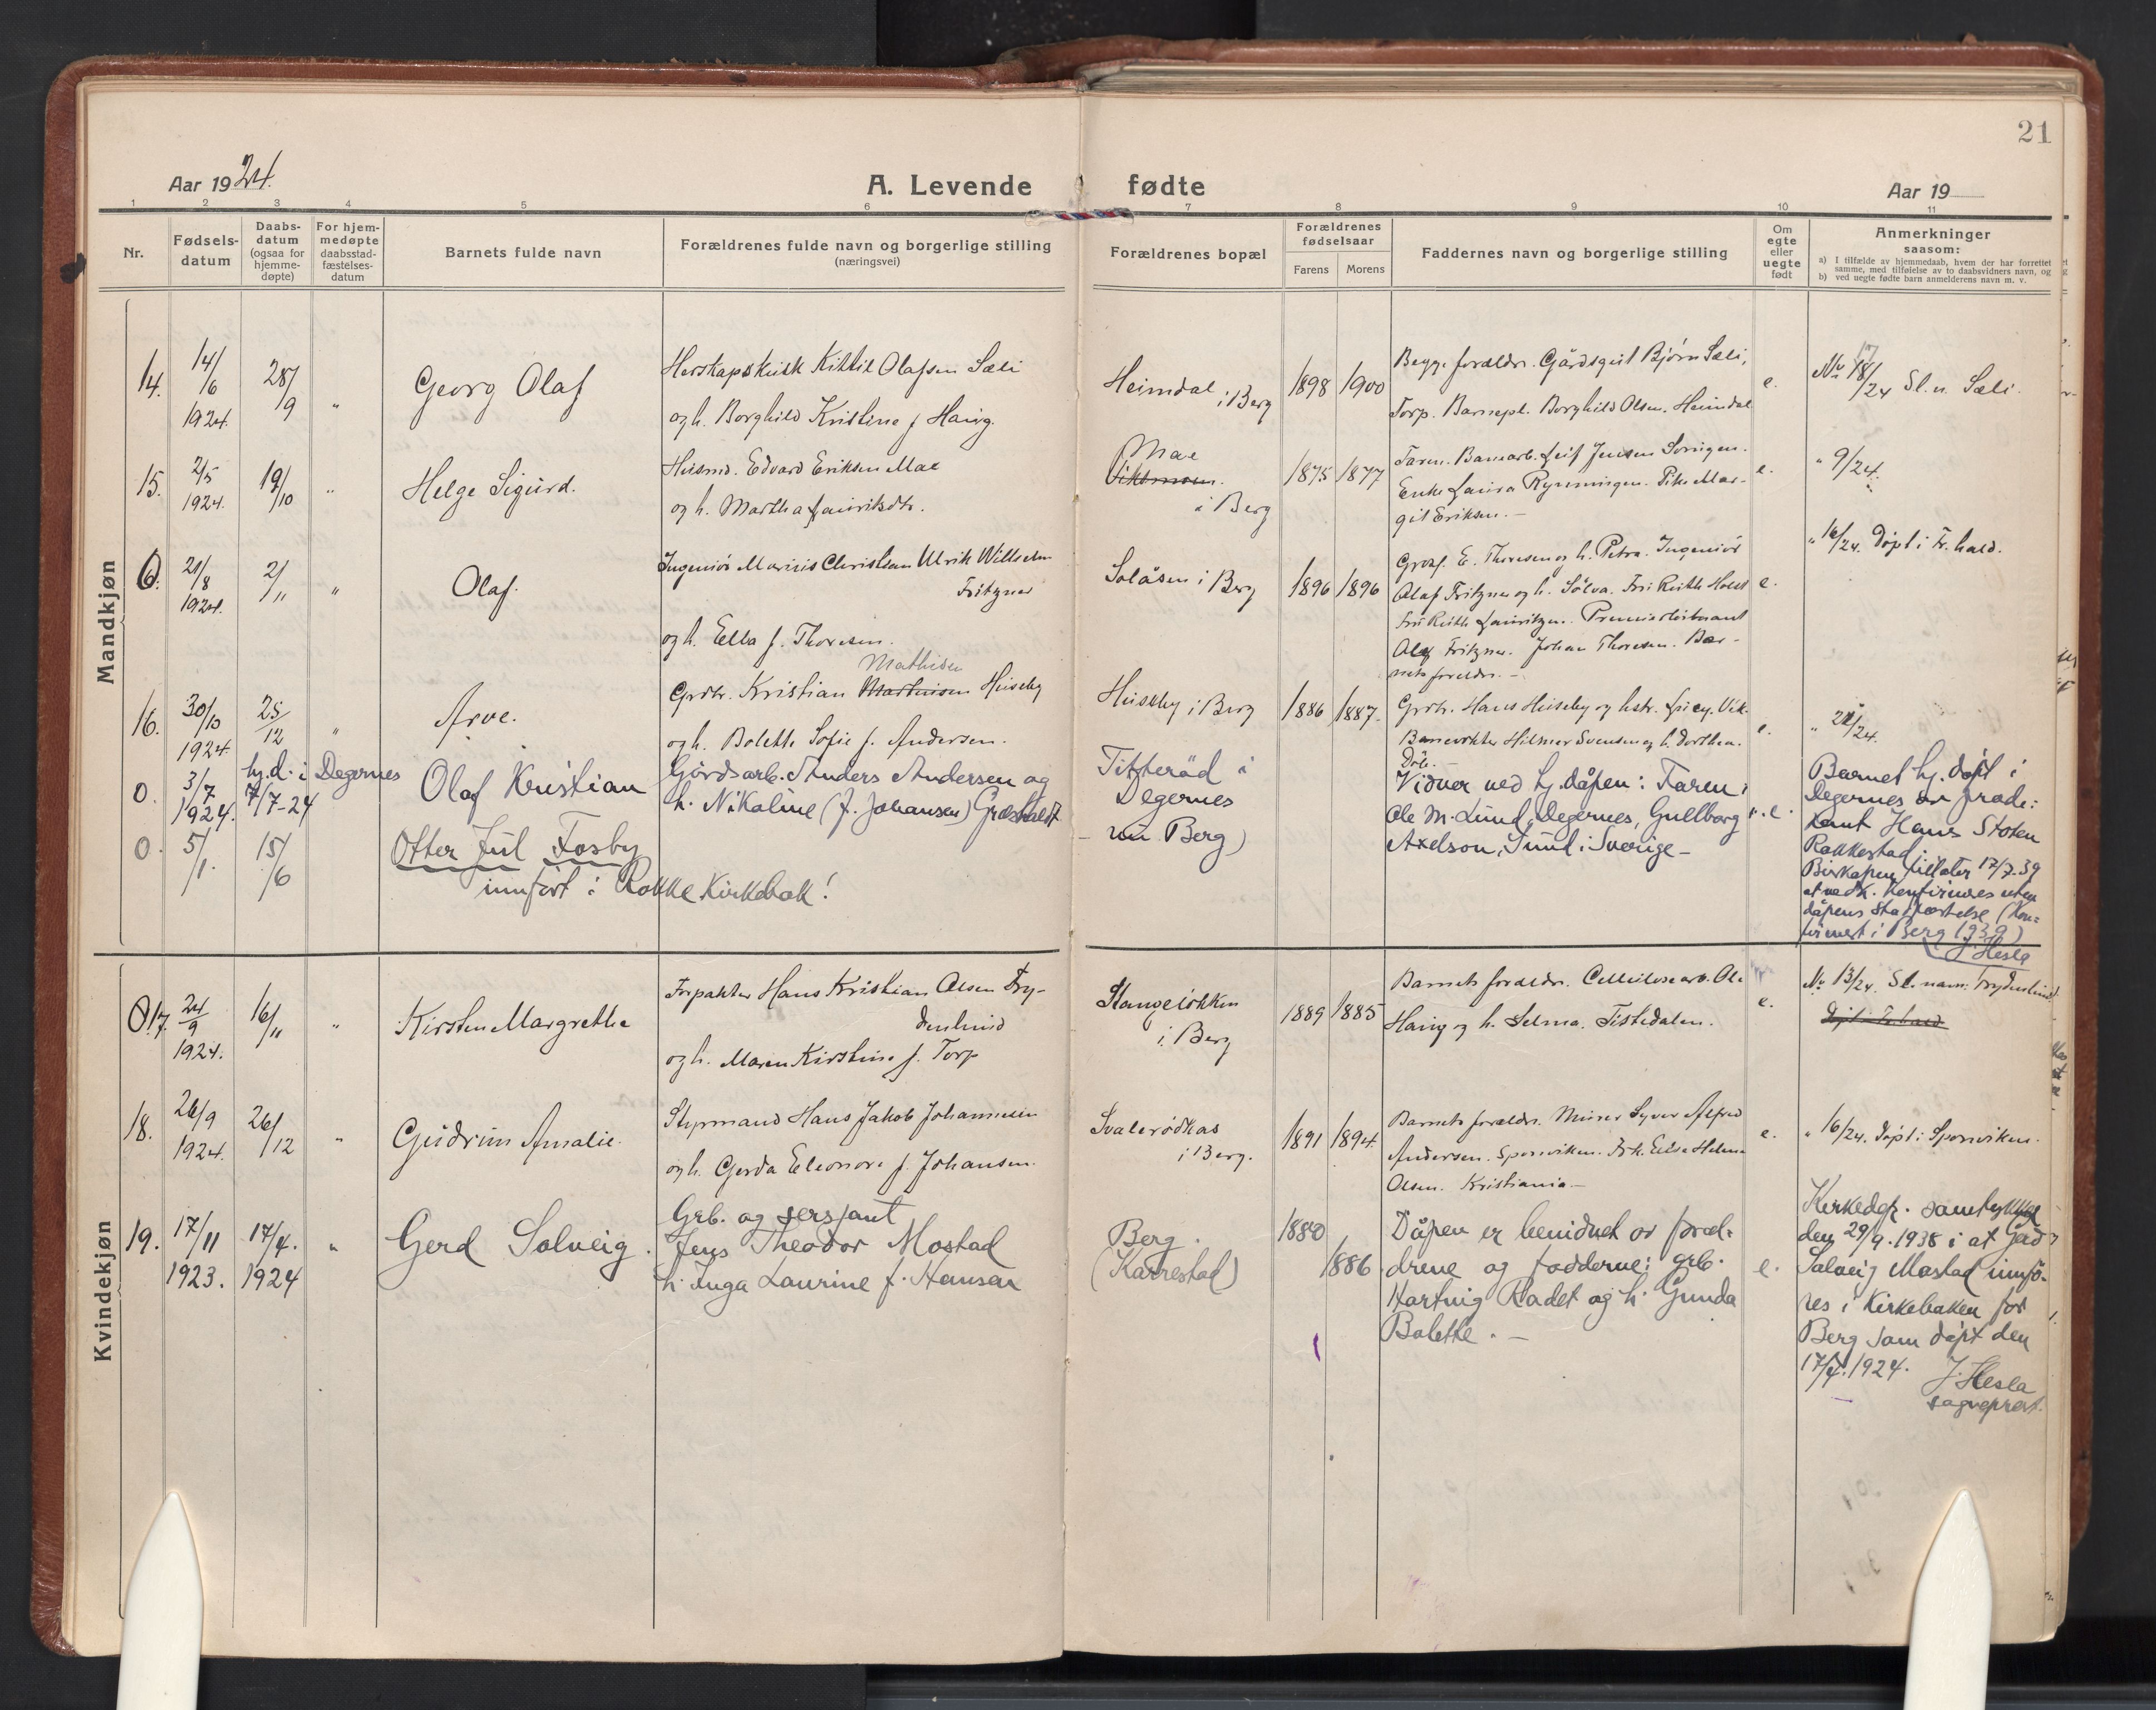 21
Aar 1924.
A. Levende fødte
Aar 19
1 2 3 4 5 6 7 8 9 10 11
Nr.
Fødsels-
datum
Daabs-
datum
(ogsaa for
hjemme-
døpte)
For hjem-
medøpte
daabsstad-
fæstelses-
datum
Barnets fulde navn
Forældrenes fulde navn og borgerlige stilling
(næringsvei)
Forældrenes bopæl
Forældrenes
fødselsaar
Farens Morens
Faddernes navn og borgerlige stilling
Om
egte
eller
uegte
født
Anmerkninger
saasom:
a) I tilfælde av hjemmedaab, hvem der har forrettet
samme, med tilføielse av to daabsvidners navn, og
b) ved uegte fødte barn anmelderens navn m. v.
Mandkjøn
14.
14/6
1924.
28/9
"
Georg Olaf
Herskapskusk Kittil Olafsen Sæli
og h. Borghild Kristine f. Havig.
Heimdal
i Berg
1898 1900
Begge foreldr. Gårdsgut Bjørn Sæli,
Torp. Barnepl. Borghild Olsen. Heimdal
e.
No 17
18/24 Sl.n. Sæli.
15.
2/5
1924.
19/10
"
Helge Sigurd.
Husmd. Edvard Eriksen Mae
og h. Martha Lauritsdtr.
Mae
i Berg
1875 1877
Faren. Banearb. Leif Jensen
Enke Laura Pike Mar-
git Eriksen. —
e.
" 9/24.
0.
21/8
1924.
2/11
"
Olaf.
Ingeniør Marius Christian Ulrik Wilhelm
Fritzner
og h. Ella f. Thoresen.
Solåsen i Berg
1896 1896
Gross. E. Thoresen og h. Petra. Ingeniør
Olaf Fritzner og h. Sølva. Fru Ruth Holst
Fru Ruth Lauritzen. Premierløitnant
Alf Fritzner. Johan Thoresen. Bar-
nets foreldr. —
e.
" 16/24. Døpt i Fr.hald.
16.
30/10
1924.
25/12
"
Arve.
Mathisen
Grdbr. Kristian Martinisen Huseby
og h. Bolette Sofie f. Andersen.
Huseby i Berg
1886 1887.
Grdbr. Hans Huseby og hstr. Lucy. Vik.
Banevokter Hilmer Svensen og h. Dorthea.
e.
" 21/24.
0.
3/7
1924.
hj.d. i Degernes
7/7-24
Olaf Kristian
Gårdsarb. Anders Andersen og
h. Nikoline (f. Johansen) Græsholdt
Titterød i
Degernes
(nu Berg)
Døb.
Vidner ved hj.dåpen: Faren,
Ole M. Lund, Degernes, Gullborg
Axelson, Sund i Sverige —
e.
Barnet hj. døpt i
Degernes av præde-
kant Hans Stoten
Rakkestad.
Biskopen tillater 17/7.39
at vedk. konfirmeres uten
dåpens stadfæstelse (Kon-
firmert i Berg 1939)
J. Hesla
0.
5/1.
15/6
Otter Jul Fosby
innført i Rokke Kirkebok!
Kvindekjøn
017.
24/9
1924.
16/11
"
Kirsten Margrethe
Forpakter Hans Kristian Olsen Try-
denlund
og h. Maren Kirstine f. Torp
Stangeløkken
i Berg
1889 1885
Barnets foreldr. Cellulosearb. Ole
Havig og h. Selma. Tistedalen.
e.
No 13/24. Sl.navn: Trydenlund.
Døpt i Fr.hald
18.
26/9
1924.
26/12
"
Gudrun Amalie.
Styrmand Hans Jakob Johannesen
og h. Gerda Eleonore f. Johansen.
Svalerødkas
i Berg.
1891 1894.
Barnets foreldr. Murer Syver Alfred
Andersen. Sponviken. Frk. Else Helene
Olsen. Kristiania —
e.
" 16/24. Døpt i Sponviken.
19.
17/11
1923.
17/4.
1924
"
Gerd Solveig.
Grb. og sersjant
Jens Theodor Mostad
h. Inga Laurine f. Hansen
Berg.
(Karrestad)
1880
1886.
Dåpen er bevidnet av foræl-
drene og fadderne: grb.
Hartvig Rødet og h. Gunda
Bolette. —
e.
Kirkedep. samtykker
den 29/9.1938 i at Gerd
Solveig Mostad innfø-
res i Kirkeboken for
Berg som døpt den
17/4.1924. J. Hesla
sogneprest.